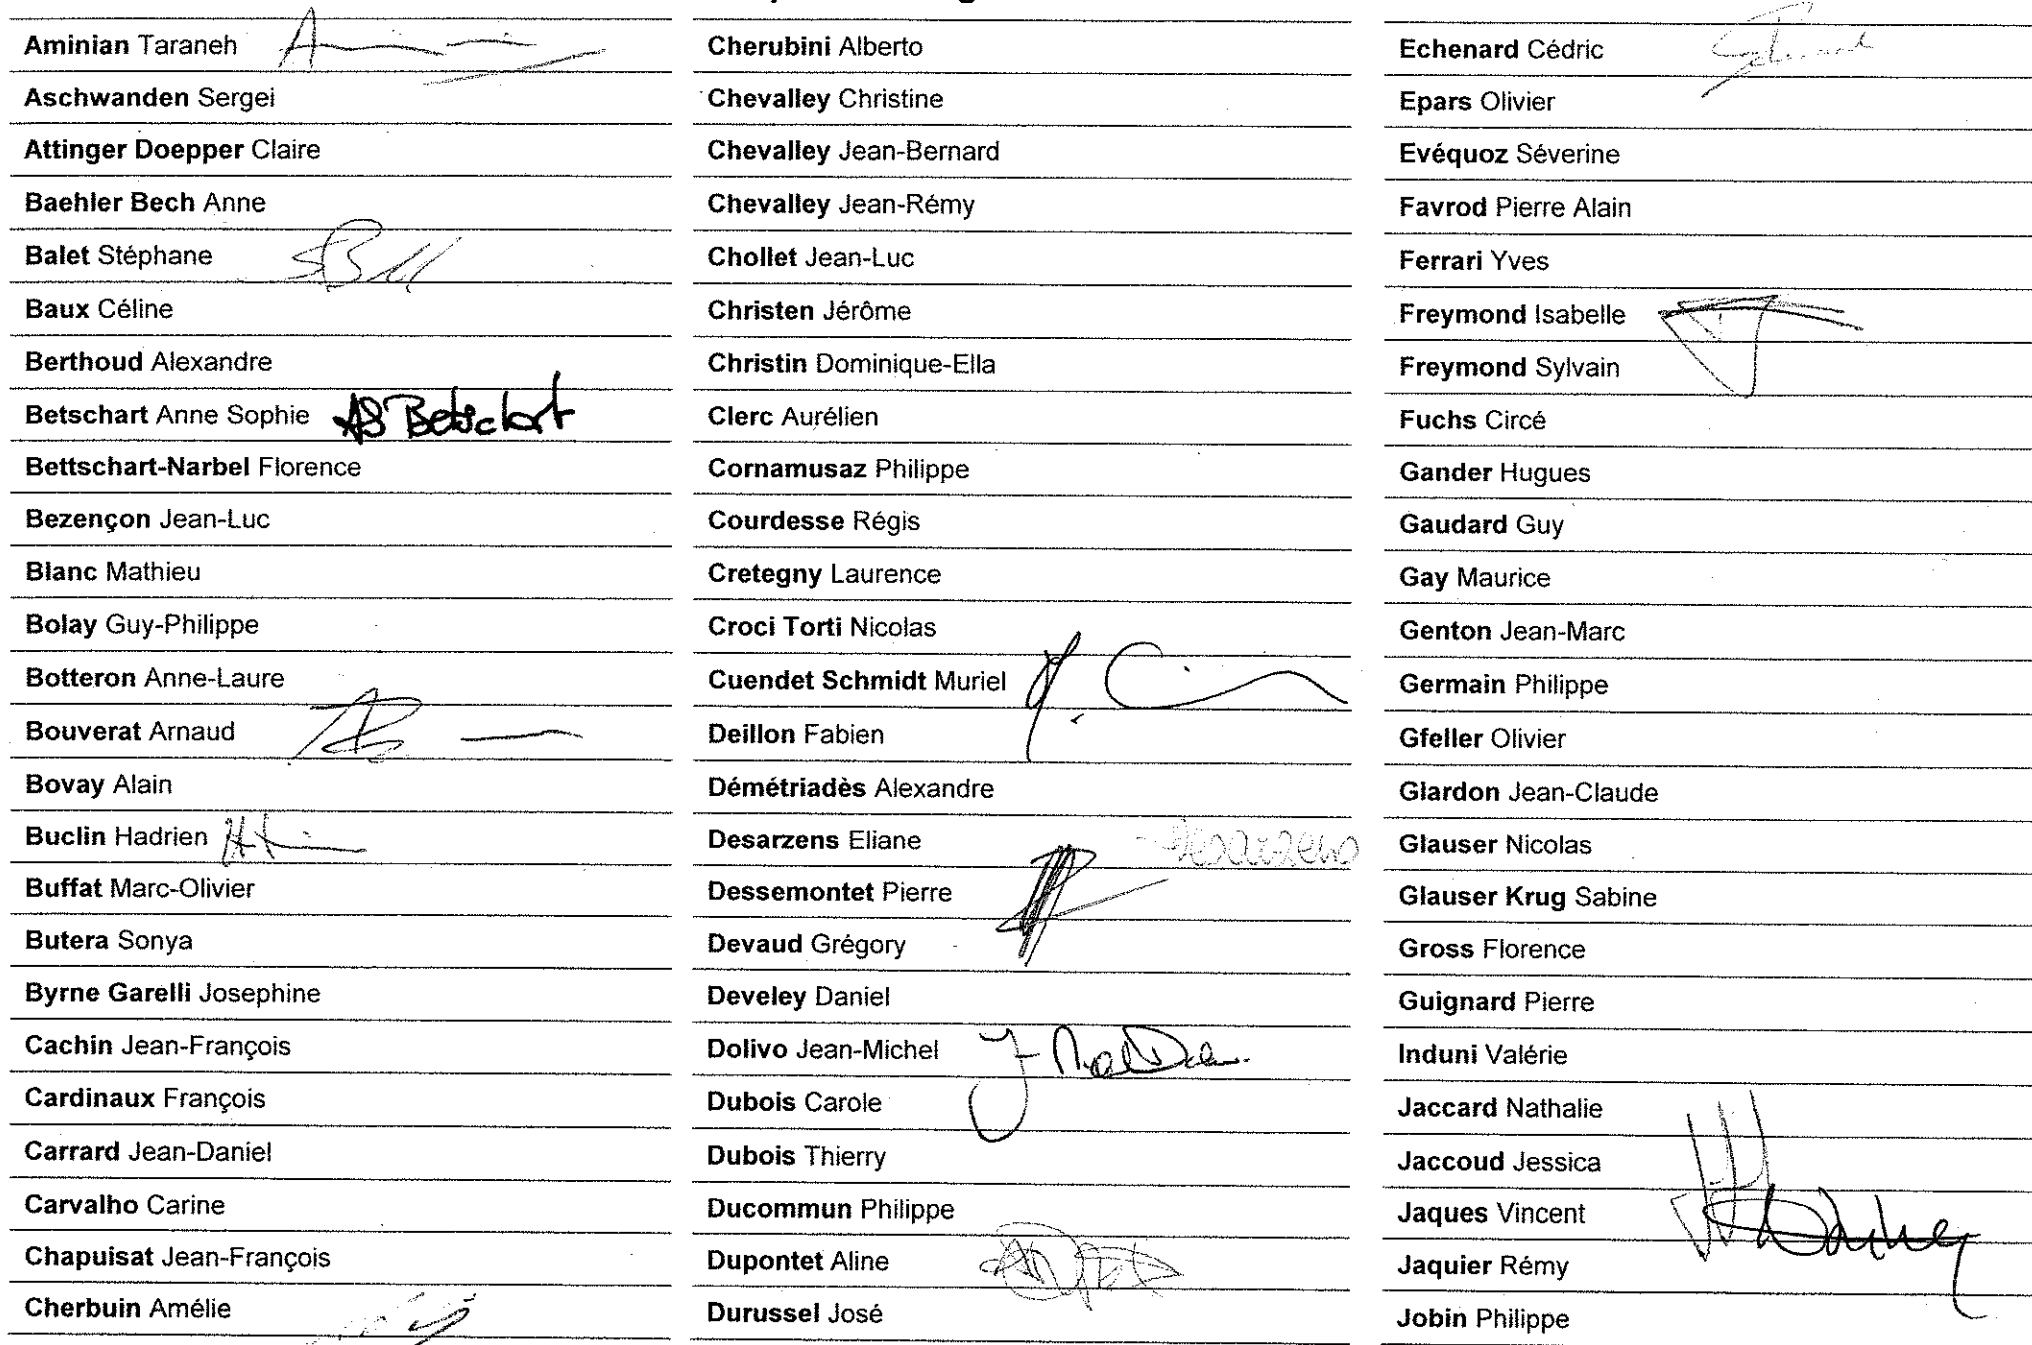 Aminian Taraneh
Aschwanden Sergei
Attinger Doepper Claire
Baehler Bech Anne
Balet Stéphane
Baux Céline
Berthoud Alexandre
Betschart Anne Sophie AS Betschart
Bettschart-Narbel Florence
Bezençon Jean-Luc
Blanc Mathieu
Bolay Guy-Philippe
Botteron Anne-Laure
Bouverat Arnaud
Bovay Alain
Buclin Hadrien
Buffat Marc-Olivier
Butera Sonya
Byrne Garelli Josephine
Cachin Jean-François
Cardinaux François
Carrard Jean-Daniel
Carvalho Carine
Chapuisat Jean-François
Cherbuin Amélie
Cherubini Alberto
Chevalley Christine
Chevalley Jean-Bernard
Chevalley Jean-Rémy
Chollet Jean-Luc
Christen Jérôme
Christin Dominique-Ella
Clerc Aurélien
Cornamusaz Philippe
Courdesse Régis
Cretegny Laurence
Croci Torti Nicolas
Cuendet Schmidt Muriel
Deillon Fabien
Démétriadès Alexandre
Desarzens Eliane Desarzens
Dessemontet Pierre
Devaud Grégory
Develey Daniel
Dolivo Jean-Michel
Dubois Carole
Dubois Thierry
Ducommun Philippe
Dupontet Aline
Durussel José
Echenard Cédric
Epars Olivier
Evéquoz Séverine
Favrod Pierre Alain
Ferrari Yves
Freymond Isabelle
Freymond Sylvain
Fuchs Circé
Gander Hugues
Gaudard Guy
Gay Maurice
Genton Jean-Marc
Germain Philippe
Gfeller Olivier
Glardon Jean-Claude
Glauser Nicolas
Glauser Krug Sabine
Gross Florence
Guignard Pierre
Induni Valérie
Jaccard Nathalie
Jaccoud Jessica
Jaques Vincent
Jaquier Rémy
Jobin Philippe